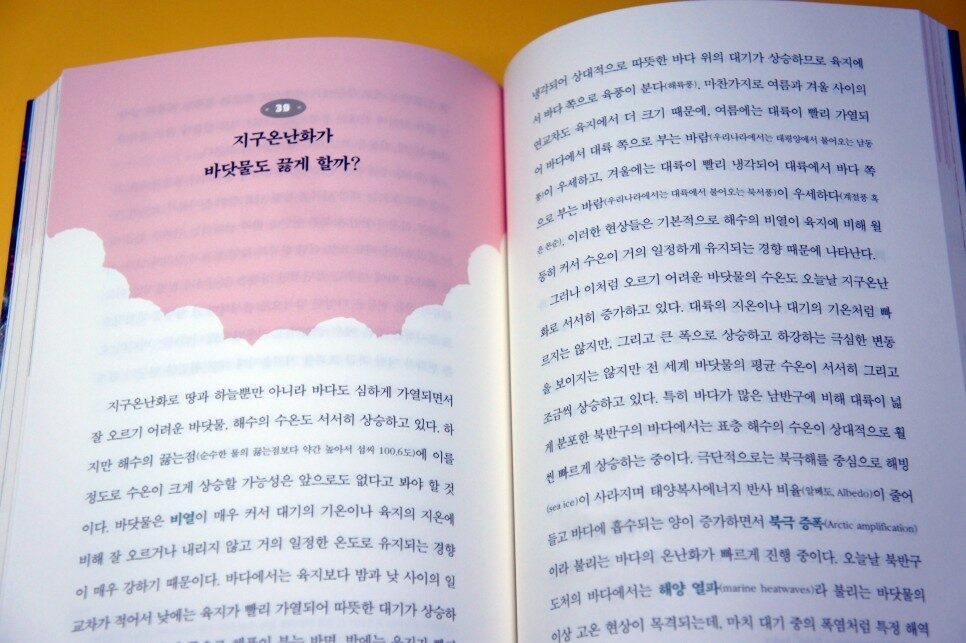 39
지구온난화가
바닷물도 끓게 할까?
지구온난화로 땅과 하늘뿐만 아니라 바다도 심하게 가열되면서
잘 오르기 어려운 바닷물, 해수의 수온도 서서히 상승하고 있다. 하
지만 해수의 끓는점(순수한 물의 끓는점보다 약간 높아서 섭씨 100.6도)에 이를
정도로 수온이 크게 상승할 가능성은 앞으로도 없다고 봐야 할 것
이다. 바닷물은 비열이 매우 커서 대기의 기온이나 육지의 지온에
비해 잘 오르거나 내리지 않고 거의 일정한 온도로 유지되는 경향
이 매우 강하기 때문이다. 바다에서는 육지보다 밤과 낮 사이의 일
교차가 적어서 낮에는 육지가 빨리 가열되어 따뜻한 대기가 상승하
냉각되어 상대적으로 따뜻한 바다 위의 대기가 상승하므로 육지에
서 바다 쪽으로 육풍이 분다(해륙풍). 마찬가지로 여름과 겨울 사이의
연교차도 육지에서 더 크기 때문에, 여름에는 대륙이 빨리 가열되
어 바다에서 대륙 쪽으로 부는 바람(우리나라에서는 태평양에서 불어오는 남동
풍)이 우세하고, 겨울에는 대륙이 빨리 냉각되어 대륙에서 바다 쪽
으로 부는 바람(우리나라에서는 대륙에서 불어오는 북서풍)이 우세하다(계절풍 혹
은 몬순). 이러한 현상들은 기본적으로 해수의 비열이 육지에 비해 월
등히 커서 수온이 거의 일정하게 유지되는 경향 때문에 나타난다.
그러나 이처럼 오르기 어려운 바닷물의 수온도 오늘날 지구온난
화로 서서히 증가하고 있다. 대륙의 지온이나 대기의 기온처럼 빠
르지는 않지만, 그리고 큰 폭으로 상승하고 하강하는 극심한 변동
을 보이지는 않지만 전 세계 바닷물의 평균 수온이 서서히 그리고
조금씩 상승하고 있다. 특히 바다가 많은 남반구에 비해 대륙이 넓
게 분포한 북반구의 바다에서는 표층 해수의 수온이 상대적으로 훨
씬 빠르게 상승하는 중이다. 극단적으로는 북극해를 중심으로 해빙
(sea ice)이 사라지며 태양복사에너지 반사 비율(알베도, Albedo)이 줄어
들고 바다에 흡수되는 양이 증가하면서 북극 증폭(Arctic amplification)
이라 불리는 바다의 온난화가 빠르게 진행 중이다. 오늘날 북반구
도처의 바다에서는 해양 열파(marine heatwaves)라 불리는 바닷물의
이상 고온 현상이 목격되는데, 마치 대기 중의 폭염처럼 특정 해역